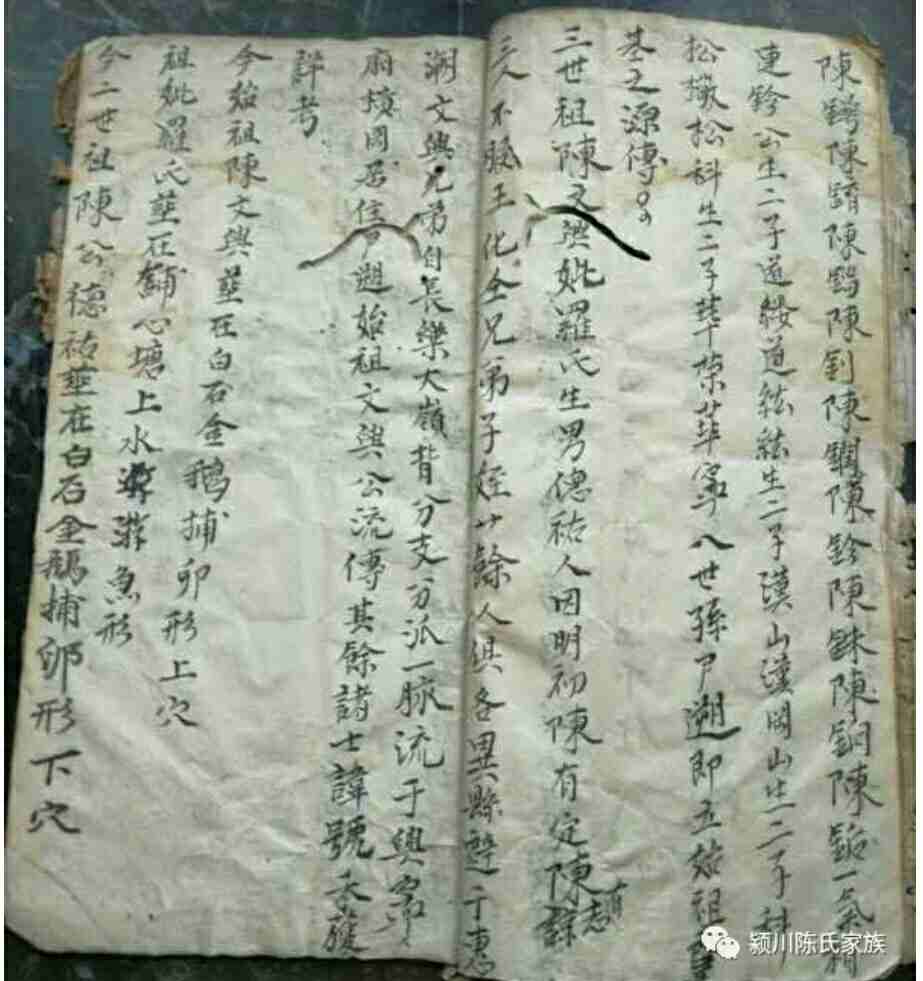 陳鏄陳鐠陳錫陳釗陳鐗陳鈴陳銖陳錭陳鋁一氣相
連鈴公生二子道綾道紘紘生二子漢山漢岡山生二子科
松墩松科生二子華榮華寧八世孫尸遡即立始祖
基之源傳
三世祖陳文興妣羅氏生男德祐人因明初陳有定陳有諒志
三人不服王化全兄弟子姪廿餘人俱各異縣避于惠
潮文興兄弟自長樂大嶺背分支分派一脉流于興寧
府墳岡居住尸遡始祖文興公流傳其餘諸士諱號未獲
詳考
今始祖陳文興𦵏在白石金鵝捕卵形上穴
祖妣羅氏𦵏在鯆心塘上水游魚形
今二世祖陳公德祐𦵏在白石金鵝捕卵形下穴
颍川陈氏家族